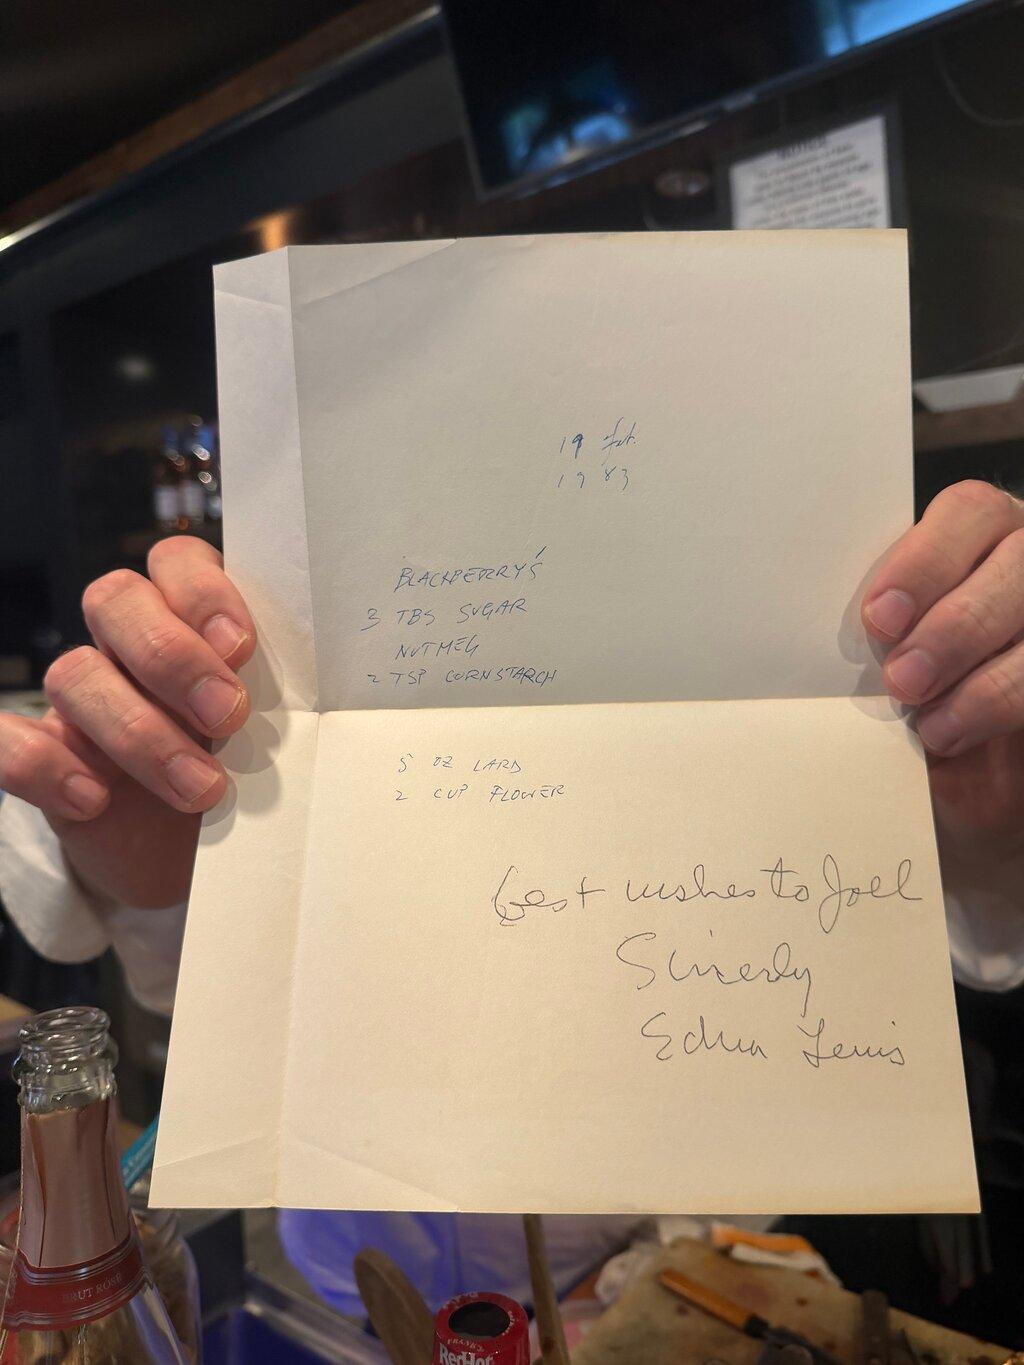 19 Feb.
1983
BLACKBERRY'S
3 TBS SUGAR
NUTMEG
2 TSP CORNSTARCH
5 OZ LARD
2 CUP FLOWER
best wishes to Joel
Sincerly
Edna Lewis
BRUT ROSÉ
FRANK'S
RedHot